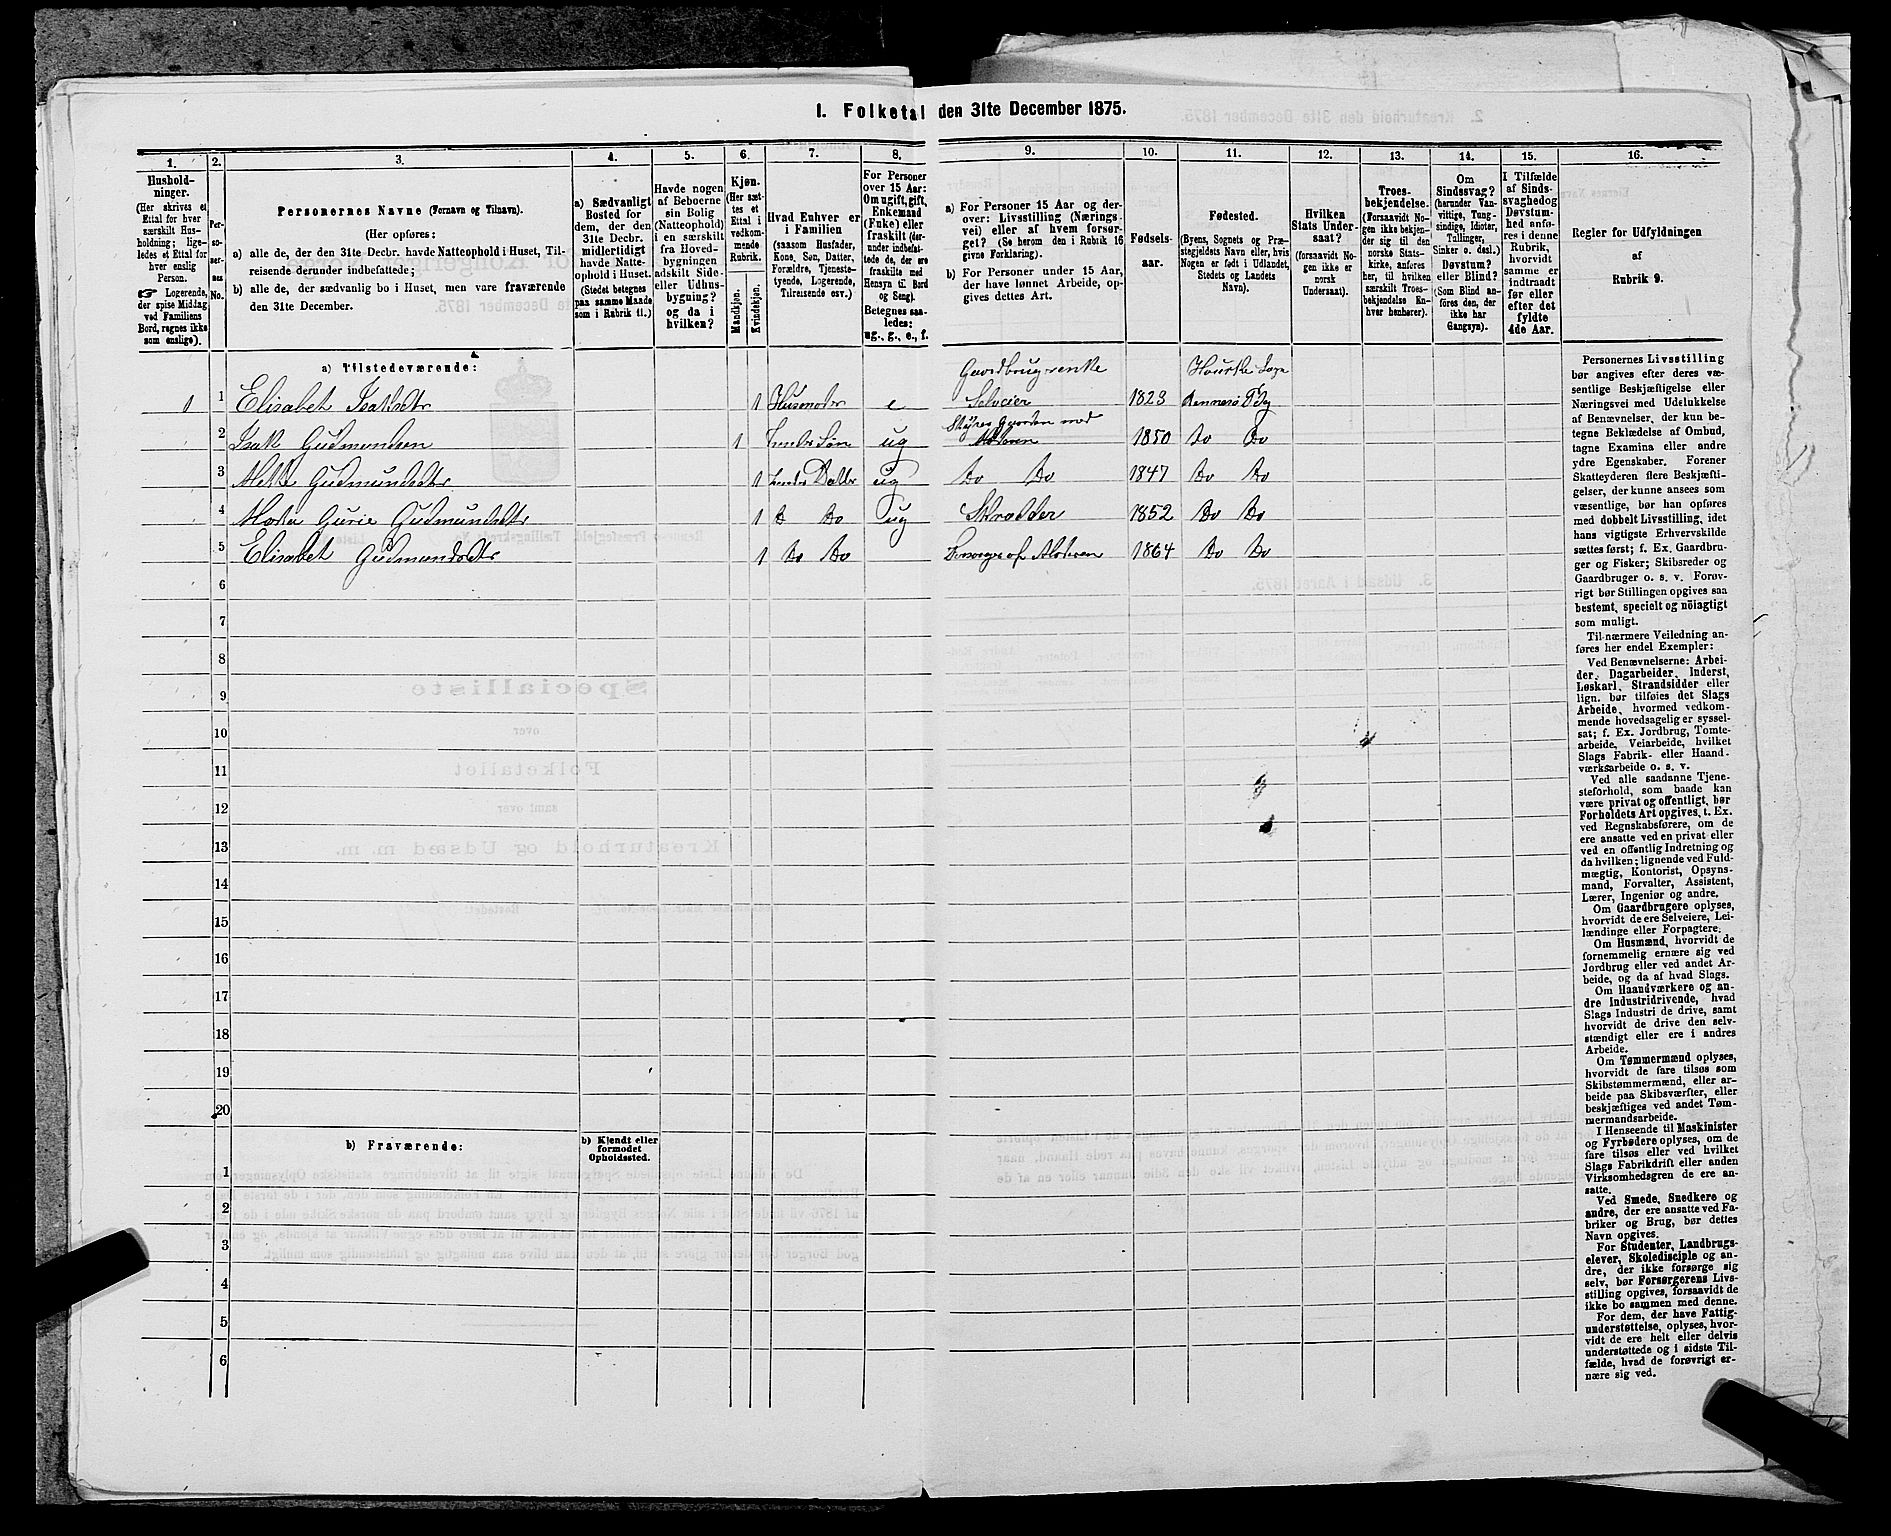 I. Folketal den 31te December 1875.
1. 2. 3. 4. 5. 6. 7. 8. 9. 10. 11. 12. 13. 14. 15. 16.
Hushold-
ninger.
(Her skrives et
Ettal for hver
særskilt Hus-
holdning; lige-
ledes et Ettal for
hver enslig
Person.
☞ Logerende,
der spise Middag
ved Familiens
Bord, regnes ikke
som enslige).
Per-
so-
ner-
nes
No.
Personernes Navne (Fornavn og Tilnavn).
(Her opføres:
a) alle de, der den 31te Decbr. havde Natteophold i Huset, Til-
reisende derunder indbefattede;
b) alle de, der sædvanlig bo i Huset, men vare fraværende
den 31te December.
a) Sædvanligt
Bosted for
dem, der den
31te Decbr.
midlertidigt
havde Natte-
ophold i Huset.
(Stedet betegnes
paa samme Maade
som i Rubrik 11.)
Havde nogen
af Beboerne
sin Bolig
(Natteophold)
i en særskilt
fra Hoved-
bygningen
adskilt Side-
eller Udhus-
bygning?
og da i
hvilken?
Kjøn.
(Her sæt-
tes et
Ettal i
vedkom-
mende
Rubrik.
Mandkjøn.
Kvindekjøn.
Hvad Enhver er
i Familien
(saasom Husfader,
Kone, Søn, Datter,
Forældre, Tjeneste-
tyende, Logerende,
Tilreisende osv.)
For Personer
over 15 Aar:
Om ugift, gift,
Enkemand
(Enke) eller
fraskilt (der-
under indbefat-
tede de, der ere
fraskilte med
Hensyn til Bord
og Seng).
Betegnes saa-
ledes:
ug., g., e., f.
a) For Personer 15 Aar og der-
over: Livsstilling (Nærings-
vei) eller af hvem forsør-
get? (Se herom den i Rubrik 16
givne Forklaring).
b) For Personer under 15 Aar,
der have lønnet Arbeide, op-
gives dettes Art.
Fødsels-
aar.
Fødested.
(Byens, Sognets og Præ-
stegjeldets Navn eller, hvis
Nogen er født i Udlandet,
Stedets og Landets
Navn).
Hvilken
Stats Under-
saat?
(forsaavidt No-
gen ikke er
norsk
Undersaat).
Troes-
bekjendelse.
(Forsaavidt No-
gen ikke bekjen-
der sig til den
norske Stats-
kirke, anføres
her, til hvilken
særskilt Troes-
bekjendelse En-
hver henhører).
Om
Sindssvag?
(herunder Van-
vittige, Tung-
sindige, Idioter,
Tullinger,
Sinker o. desl.).
Døvstum?
eller Blind?
(Som Blind an-
føres den, der
ikke har
Gangsyn).
I Tilfælde
af Sinds-
svaghed og
Døvstum-
hed anfø-
res i denne
Rubrik,
hvorvidt
samme er
indtraadt
før eller
efter det
fyldte
4de Aar.
Regler for Udfyldningen
af
Rubrik 9.
a) Tilstedeværende:
Gaardbrugerenke
1 1 Elisabet Isaksdtr 1 Husmoder e Selveier 1823 Rennesø
Styrer Gaarden med
2 Isak Gudmundsen 1 Søn ug Moderen 1850 Do Do
3 Mette Gudmundsdtr 1 Datter ug Do Do 1847 Do Do
4 Gurie Gudmundsdtr 1 D Do ug Skrædder 1852 Do Do
5 Elisabet Gudmundsdtr 1 Do Do Forsørges af Moderen 1864 Do Do
6
7
8
9
10
11
12
13
14
15
16
17
18
19
20
b) Fraværende:
b) Kjendt eller
formodet
Opholdssted.
1
2
3
4
5
6
Personernes Livsstilling
bør angives efter deres væ-
sentlige Beskjæftigelse eller
Næringsvei med Udelukkelse
af Benævnelser, der kun be-
tegne Beklædelse af Ombud,
tagne Examina eller andre
ydre Egenskaber. Forener
Skatteyderen flere Beskjæfti-
gelser, der kunne ansees som
væsentlige, bør han opføres
med dobbelt Livsstilling, idet
hans vigtigste Erhvervskilde
sættes først; f. Ex. Gaardbru-
ger og Fisker; Skibsreder og
Gaardbruger o. s. v. Forøv-
rigt bør Stillingen opgives saa
bestemt, specielt og nöiagtigt
som muligt.
Til nærmere Veiledning an-
føres her endel Exempler:
Ved Benævnelserne: Arbei-
der, Dagarbeider, Inderst,
Løskarl, Strandsidder eller
lign. bør tilføies det Slags
Arbeide, hvormed vedkom-
mende hovedsagelig er syssel-
sat; f. Ex. Jordbrug, Tomte-
arbeide, Veiarbeide, hvilket
Slags Fabrik- eller Haand-
værksarbeide o. s. v.
Ved alle saadanne Tjene-
steforhold, som baade kan
være privat og offentligt, bør
Forholdets Art opgives, t. Ex.
ved Regnskabsførere, om de
ere ansatte ved en privat eller
ved en offentlig Indretning og
da hvilken; lignende ved Fuld-
mægtig, Kontorist, Opsyns-
mand, Forvalter, Assistent,
Lærer, Ingeniør og andre.
Om Gaardbrugere oplyses,
hvorvidt de ere Selveiere, Lei-
lændinge eller Forpagtere.
Om Husmænd, hvorvidt de
fornemmelig ernære sig ved
Jordbrug eller ved andet Ar-
beide, og da af hvad Slags.
Om Haandværkere og an-
dre Industridrivende, hvad
Slags Industri de drive, samt
hvorvidt de drive den selv-
stændigt eller ere i andres
Arbeide.
Om Tømmermænd oplyses,
hvorvidt de fare tilsøs som
Skibstømmermænd, eller ar-
beide paa Skibsværfter, eller
beskjæftiges ved andet Tøm-
mermandsarbeide.
I Henseende til Maskinister
og Fyrbødere oplyses, om de
fare tilsøs eller ved hvilket
Slags Fabrikdrift eller anden
Virksomhedsgren de ere an-
satte.
Ved Smede, Snedkere og
andre, der ere ansatte ved Fa-
briker og Brug, bør dettes
Navn opgives.
For Studenter, Landbrugs-
elever, Skoledisciple og an-
dre, der ikke forsørge sig
selv, bør Forsørgerens Livs-
stilling opgives, forsaavidt de
ikke bo sammen med denne.
For dem, der have Fattig-
understøttelse, oplyses, hvor-
vidt de ere helt eller delvis
understøttede og i sidste Til-
fælde, hvad de forøvrigt er-
nære sig ved.